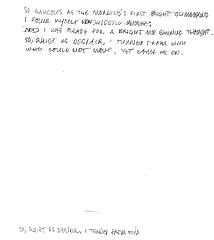 SO RAUCOUS AS THE MORNING'S FIRST BRIGHT
I FOUND MYSELF
AND I WAS READY FOR A BRIGHT AND SHINING THOUGHT.
SO, QUIET AS DESPAIR, I TURNED FROM HIM
WHO COULD NOT MOVE, YET CAME HE ON.
SO, QUIET AS DESPAIR, I TURNED FROM HIM